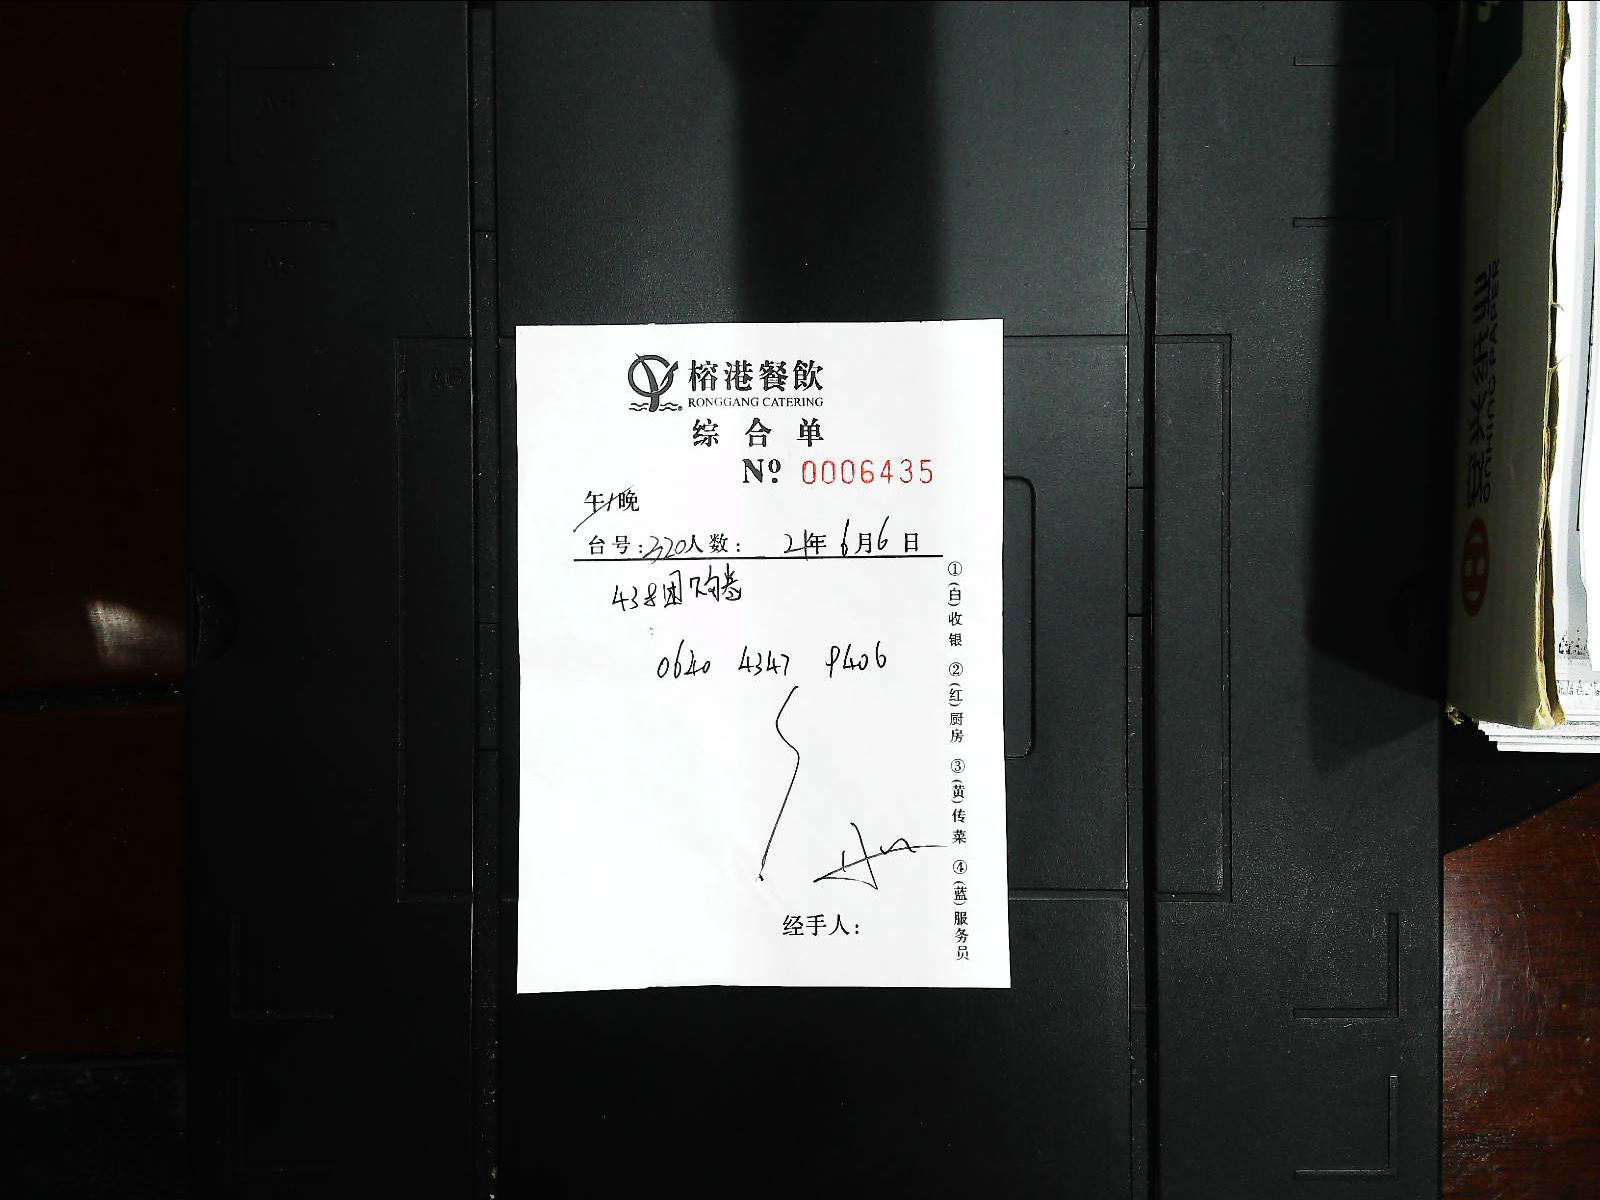 榕港餐飲
RONGGANG CATERING
综合单
№ 0006435
午/晚
台号:320人数: 21年6月6日
438团购卷
0640 4347 9406
经手人:
①(白)收银 ②(红)厨房 ③(黄)传菜 ④(蓝)服务员
A5